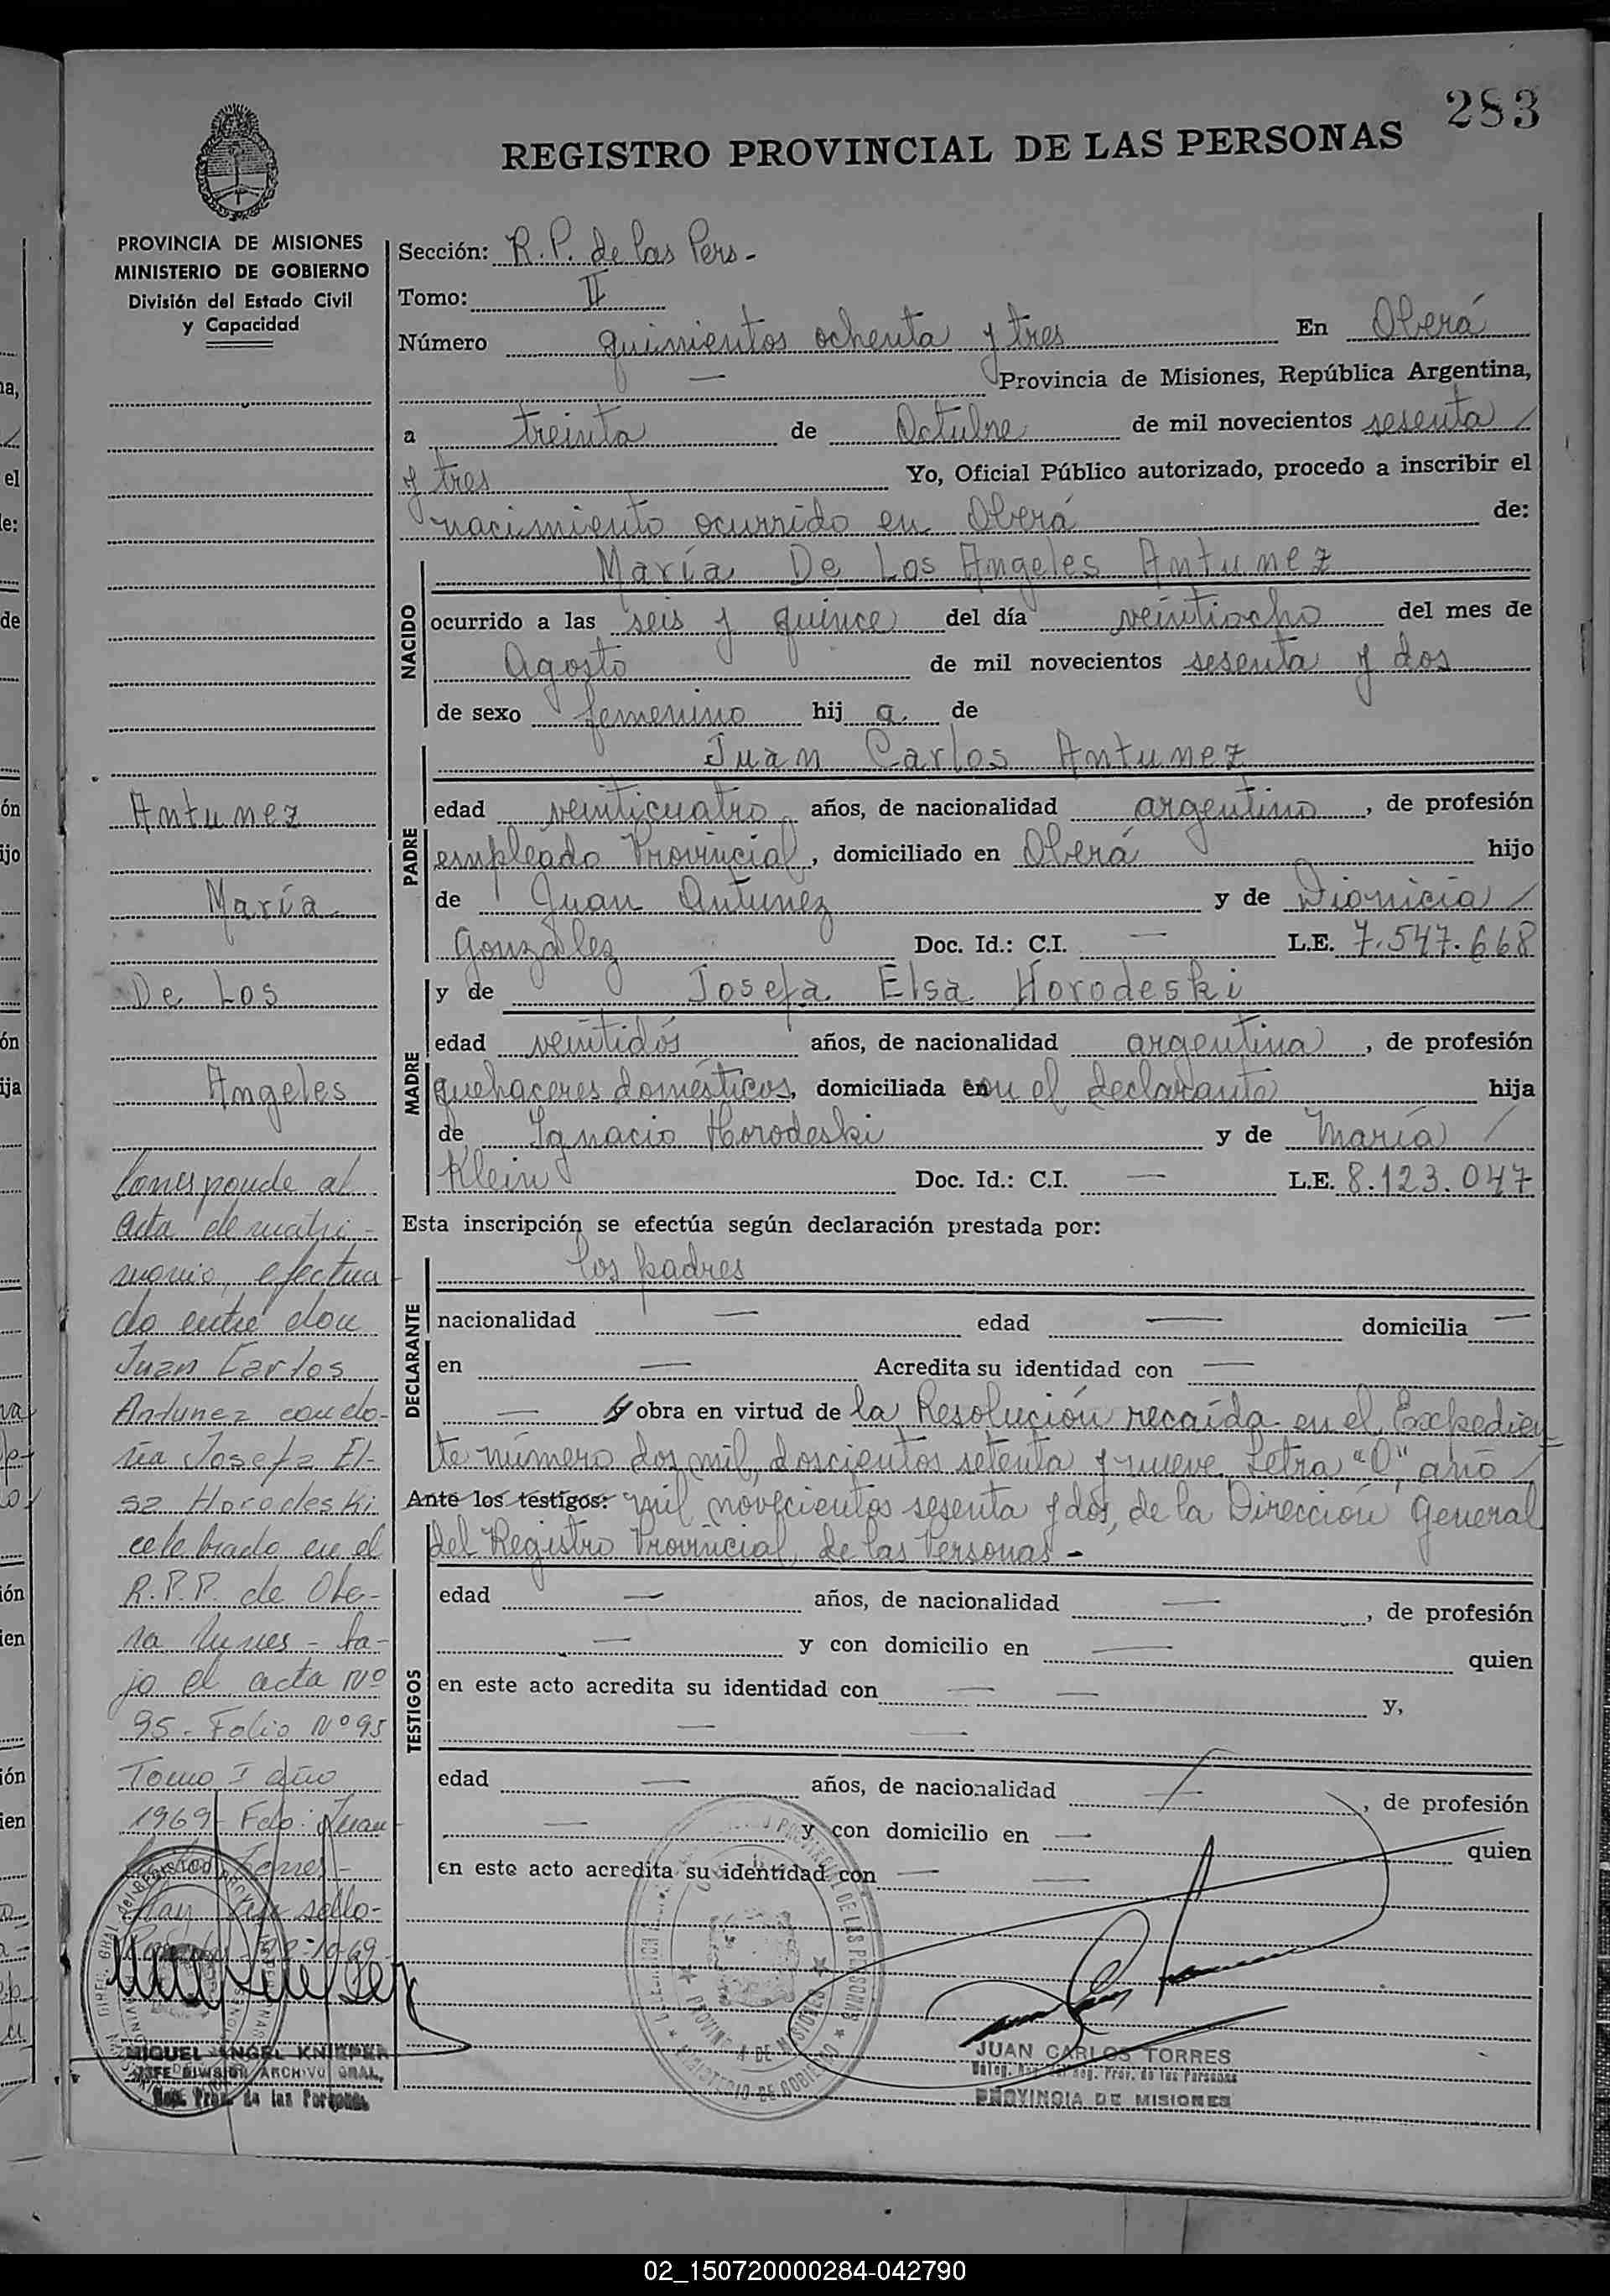 283
REGISTRO PROVINCIAL DE LAS PERSONAS
PROVINCIA DE MISIONES
MINISTERIO DE GOBIERNO
División del Estado Civil
y Capacidad
Antunez
María
De Los
Angeles
Corresponde al
acta de matri-
monio, efectua-
do entre don
Juan Carlos
Antunez con do-
ña Josefa El-
sa Horodeski
celebrado en el
R.P.P. de Obe-
ra Mnes - ba-
jo el acta Nº
95 - Folio Nº 95
Tomo I año
1969 - Fdo: Juan
Torres -
Hay sello -
MIGUEL ANGEL KNIEPER
JEFE DIVISION ARCHIVO GRAL.
Reg. Prov. de las Personas
Sección: R.P. de las Pers -
Tomo: II
Número quinientos ochenta y tres En Oberá
— Provincia de Misiones, República Argentina,
a treinta de Octubre de mil novecientos sesenta /
y tres Yo, Oficial Público autorizado, procedo a inscribir el
nacimiento ocurrido en Oberá de:
NACIDO
María De Los Angeles Antunez
ocurrido a las seis y quince del día veintiocho del mes de
Agosto de mil novecientos sesenta y dos
de sexo femenino hij a de
PADRE
Juan Carlos Antunez
edad veinticuatro años, de nacionalidad argentino, de profesión
empleado Provincial, domiciliado en Oberá hijo
de Juan Antunez y de Dionicia /
González Doc. Id.: C.I. — L.E. 7.547.668
MADRE
y de Josefa Elsa Horodeski
edad veintidós años, de nacionalidad argentina, de profesión
quehaceres domésticos, domiciliada en con el declarante hija
de Ignacio Horodeski y de María /
Klein Doc. Id.: C.I. — L.E. 8.123.047
Esta inscripción se efectúa según declaración prestada por:
DECLARANTE
los padres
nacionalidad — edad — domicilia —
en — Acredita su identidad con —
— y obra en virtud de la Resolución recaída en el Expedien
te número dos mil, doscientos setenta y nueve, Letra "O", año /
Ante los testigos: mil novecientos sesenta y dos, de la Dirección General
del Registro Provincial de las Personas -
TESTIGOS
edad — años, de nacionalidad —, de profesión
— y con domicilio en — quien
en este acto acredita su identidad con — — y,
— —
edad — años, de nacionalidad —, de profesión
— y con domicilio en — quien
en este acto acredita su identidad con — —
JUAN CARLOS TORRES
Reg. Prov. de las Personas
PROVINCIA DE MISIONES
02_150720000284-042790